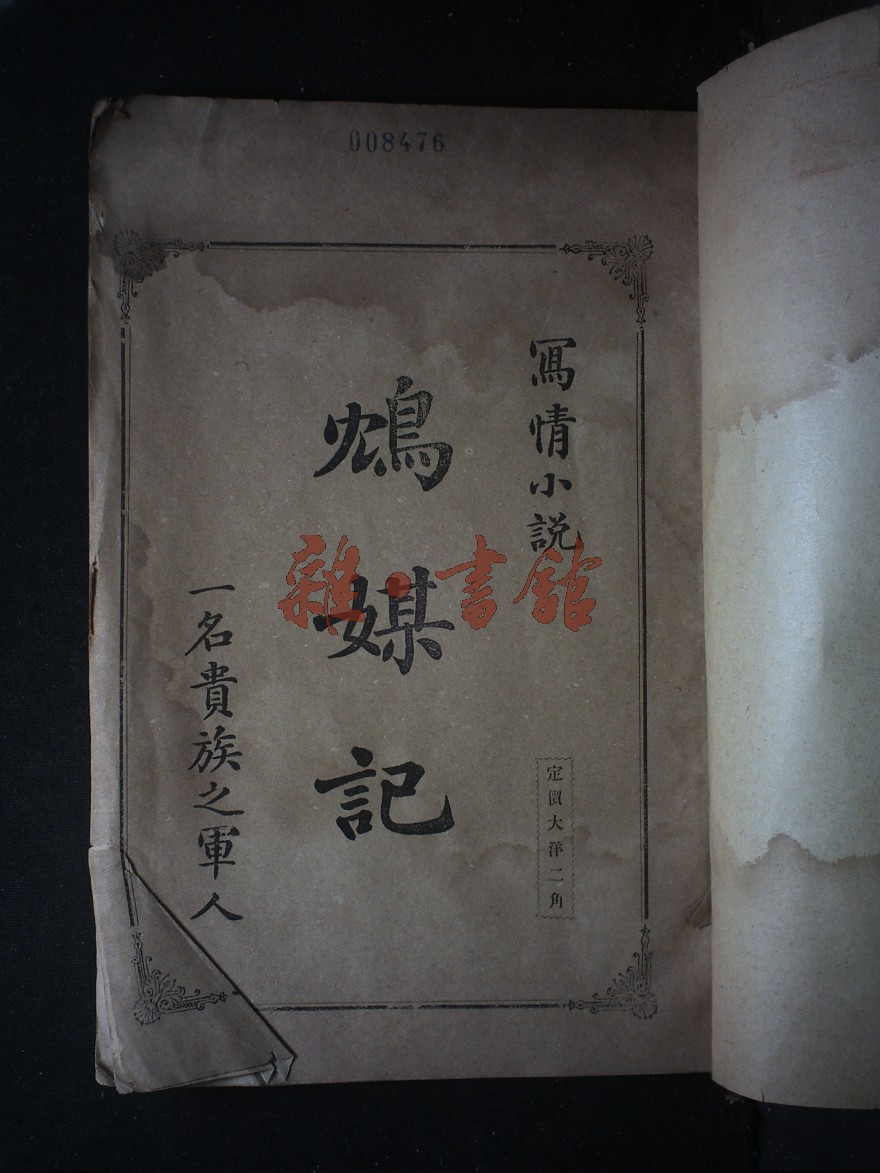 008476
冩情小説
鴆媒記
一名貴族之軍人
定價大洋二角
雜·書舘